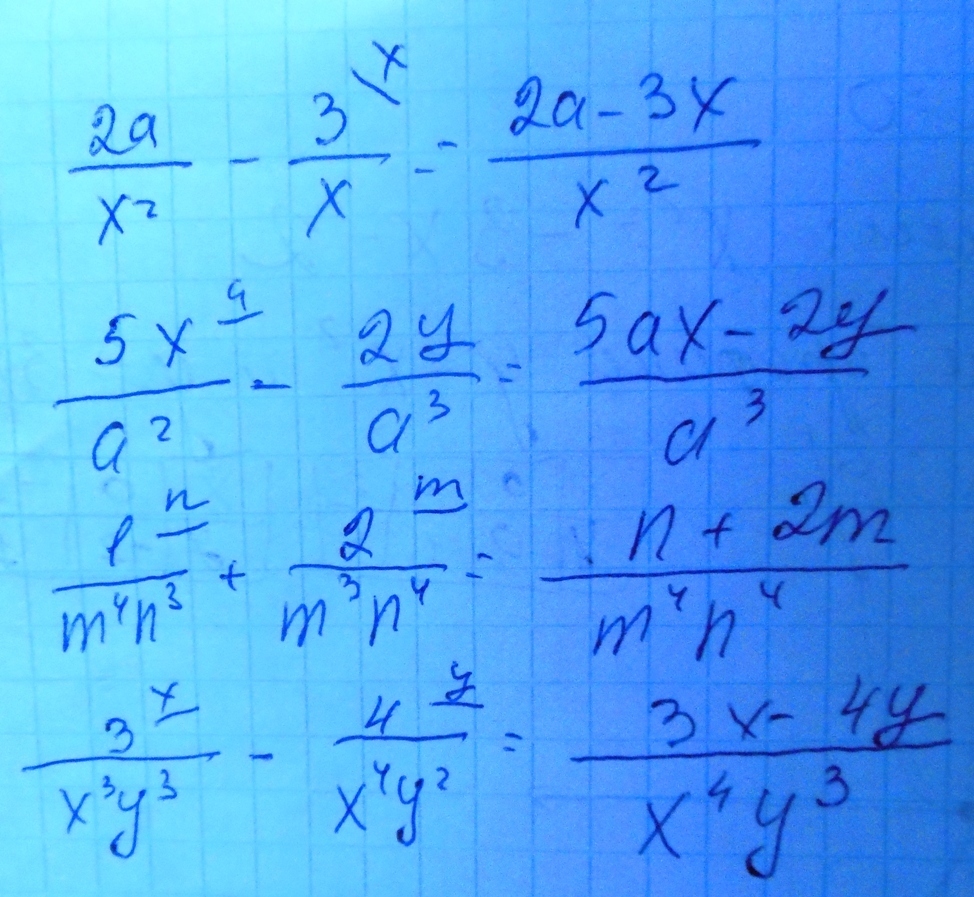 2a/x² - 3\x/x = (2a - 3x)/x²
5x\a/a² - 2y/a³ = (5ax - 2y)/a³
1\n/m⁴n³ + 2\m/m³n⁴ = (n + 2m)/m⁴n⁴
3\x/x³y³ - 4\y/x⁴y² = (3x - 4y)/x⁴y³